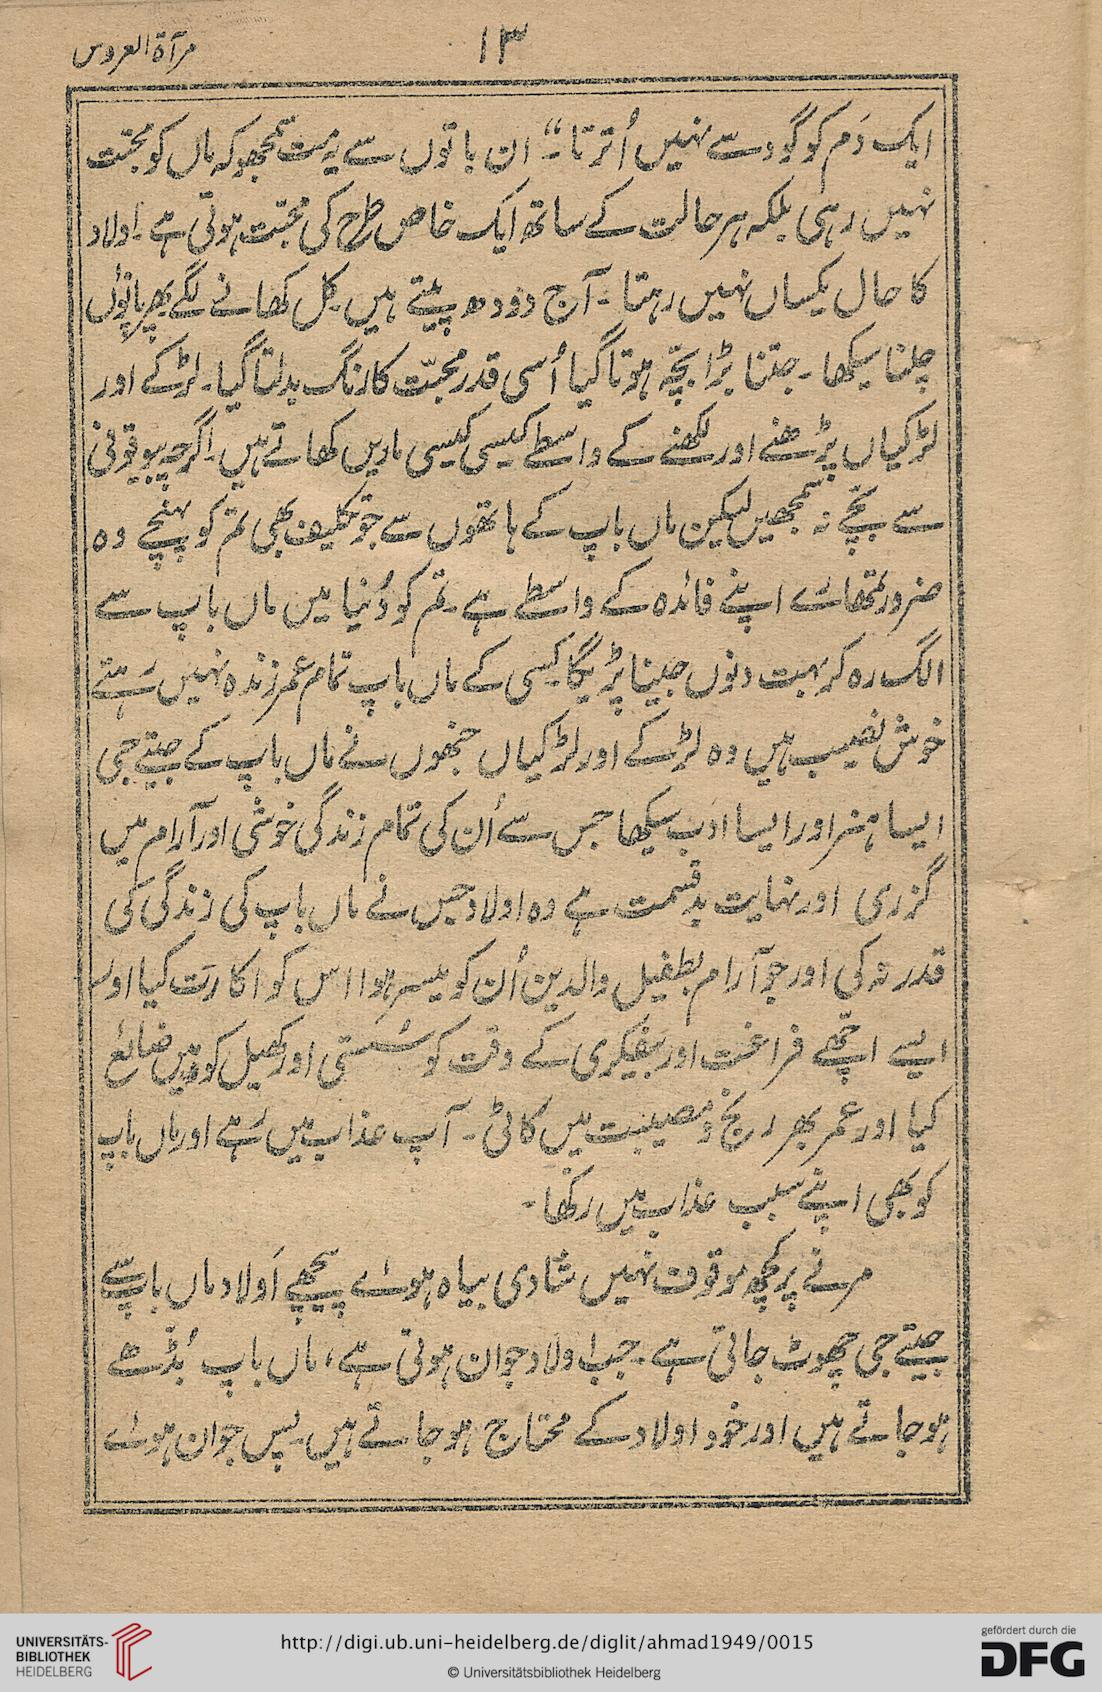 مرآۃ العروس
۱۳
ایک دَم کو گود سے نہیں اُترتا“۔ ان باتوں سے یہ مت سمجھو کہ ماں کو محبّت
نہیں رہی بلکہ ہر حالت کے ساتھ ایک خاص طرح کی محبّت ہوتی ہے۔ اولاد
کا حال یکساں نہیں رہتا۔ آج دُودھ پیتے ہیں۔ کل کھانے لگے پھر پانوؤں
چلنا سیکھا۔ جتنا بڑا بچّہ ہوتا گیا اُسی قدر محبّت کا رنگ بدلتا گیا۔ لڑکے اور
لڑکیاں پڑھنے اور لکھنے کے واسطے کیسی کیسی ماریں کھاتے ہیں۔ اگرچہ بیوقوفی
سے بچّے نہ سمجھیں لیکن ماں باپ کے ہاتھوں سے جو تکلیف بھی تم کو پہنچے وہ
ضرور تمھارے اپنے فائدہ کے واسطے ہے۔ تم کو دُنیا میں ماں باپ سے
الگ رہ کر بہت دنوں جینا پڑیگا۔ کسی کے ماں باپ تمام عمر زندہ نہیں رَہتے
خوش نصیب ہیں وہ لڑکے اور لڑکیاں جنھوں نے ماں باپ کے جیتے جی
ایسا ہنر اور ایسا ادَب سیکھا جس سے اُن کی تمام زندگی خوشی اور آرام میں
گزری اور نہایت بدقسمت ہے وہ اولاد جس نے ماں باپ کی زندگی کی
قدر نہ کی اور جو آرام بطفیل والدین اُن کو میسر ہوا اس کو اکارَت کیا اور
ایسے اچّھے فراغت اور بیفکری کے وقت کو سُستی اور کھیل کود میں ضائع
کیا اور عمر بھر رنج و مصیبت میں کاٹی۔ آپ عذاب میں رَہے اور ماں باپ
کو بھی اپنے سبب عذاب میں رکھا۔
مرنے پر کچھ موقوف نہیں شادی بیاہ ہوئے پیچھے اَولاد ماں باپ سے
جیتے جی چھوٹ جاتی ہے۔ جب اولاد جوان ہوتی ہے، ماں باپ بُڈّھے
ہوجاتے ہیں اور خود اولاد کے محتاج ہو جاتے ہیں۔ پس جوان ہوئے
UNIVERSITÄTS-
BIBLIOTHEK
HEIDELBERG
http://digi.ub.uni-heidelberg.de/diglit/ahmad1949/0015
© Universitätsbibliothek Heidelberg
gefördert durch die
DFG